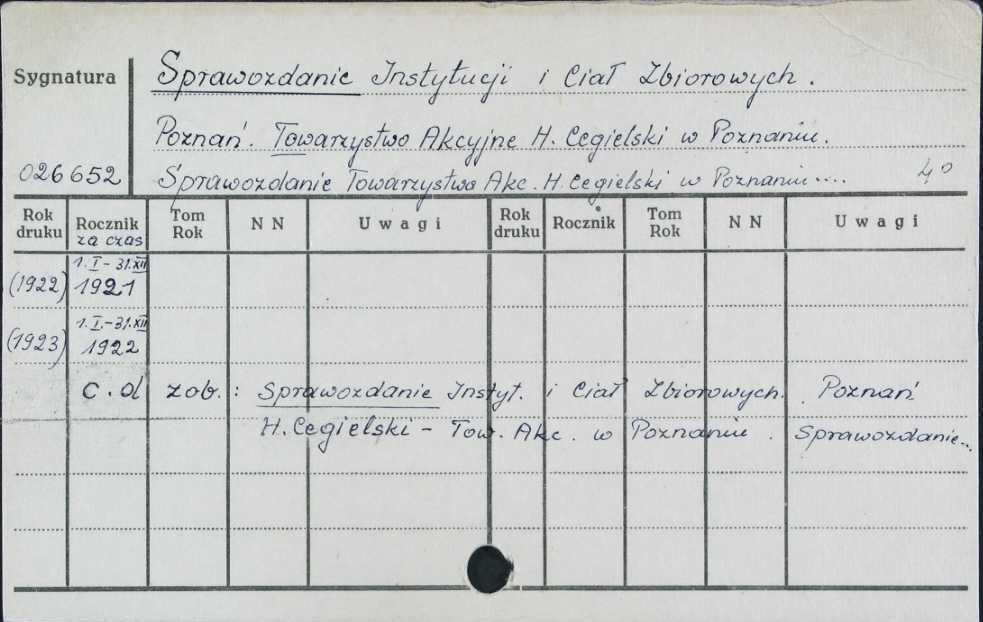 Sygnatura
Sprawozdanie Instytucji i Ciał Zbiorowych.
Poznań. Towarzystwo Akcyjne H. Cegielski w Poznaniu.
026652
Sprawozdanie Towarzystwa Akc. H. Cegielski w Poznaniu.... 4°
Rok druku Rocznik za czas Tom Rok NN Uwagi Rok druku Rocznik Tom Rok NN Uwagi
1.I-31.XII
(1922) 1921
1.I.-31.XII
(1923) 1922
c.d zob.: Sprawozdanie Instyt. i Ciał Zbiorowych. Poznań
H. Cegielski - Tow. Akc. w Poznaniu. Sprawozdanie...